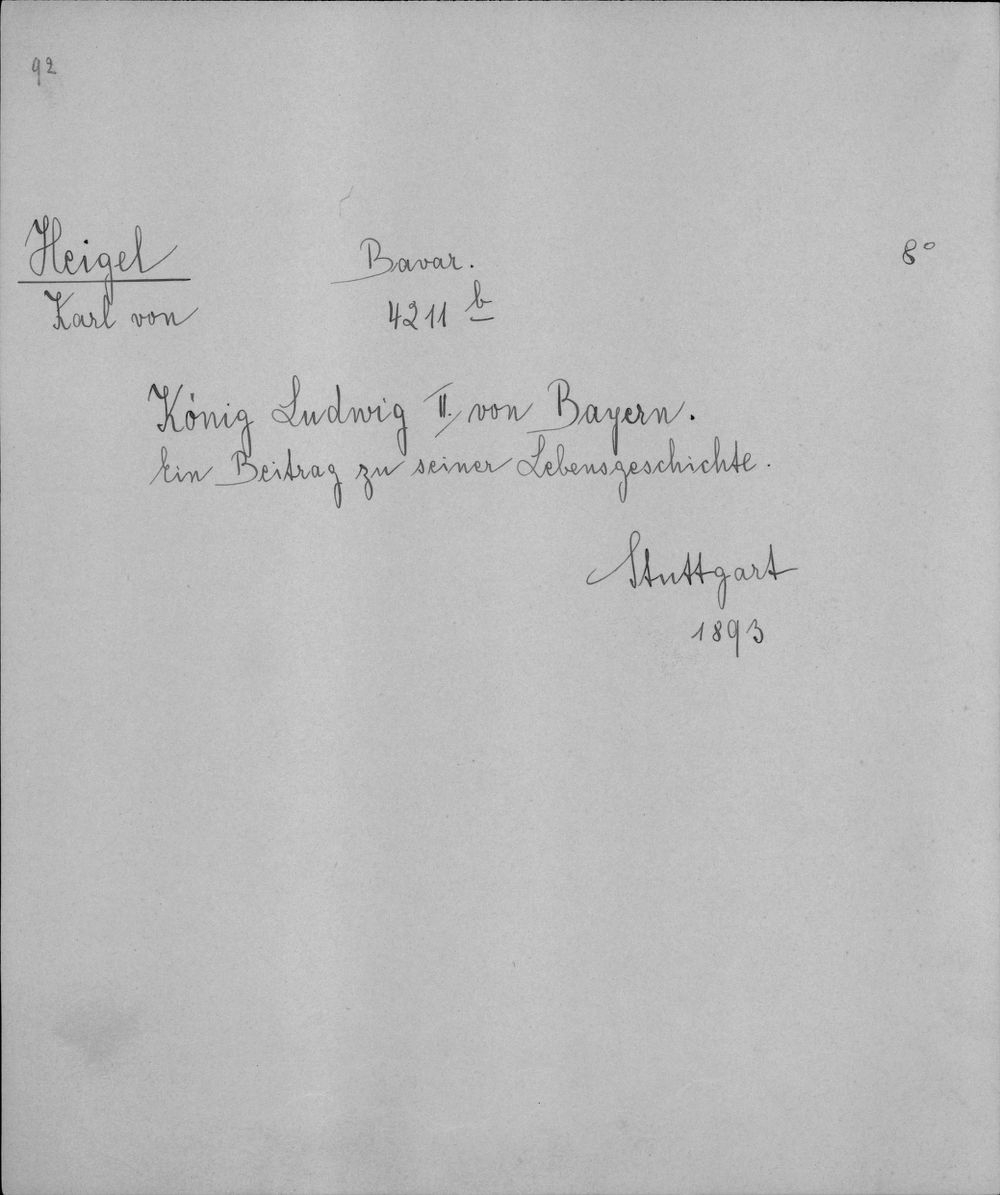 92
Heigel Bavar. 8°
Karl von 4211 b
König Ludwig II. von Bayern.
Ein Beitrag zu seiner Lebensgeschichte.
Stuttgart
1893